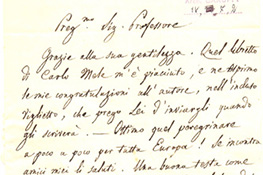 Preg.mo Sig. Professore
Grazie alla sua gentilezza. Quel libretto
di Carlo Mele m'è piaciuto, e ne esprimo
le mie congratulazioni all'autore, nell'induso
viglietto, che prego Lei d'inviargli quando
gli scriverà. — Ottimo quel peregrinare
a poco a poco per tutta Europa! Se incontra
amici miei li saluti. Una buona testa come